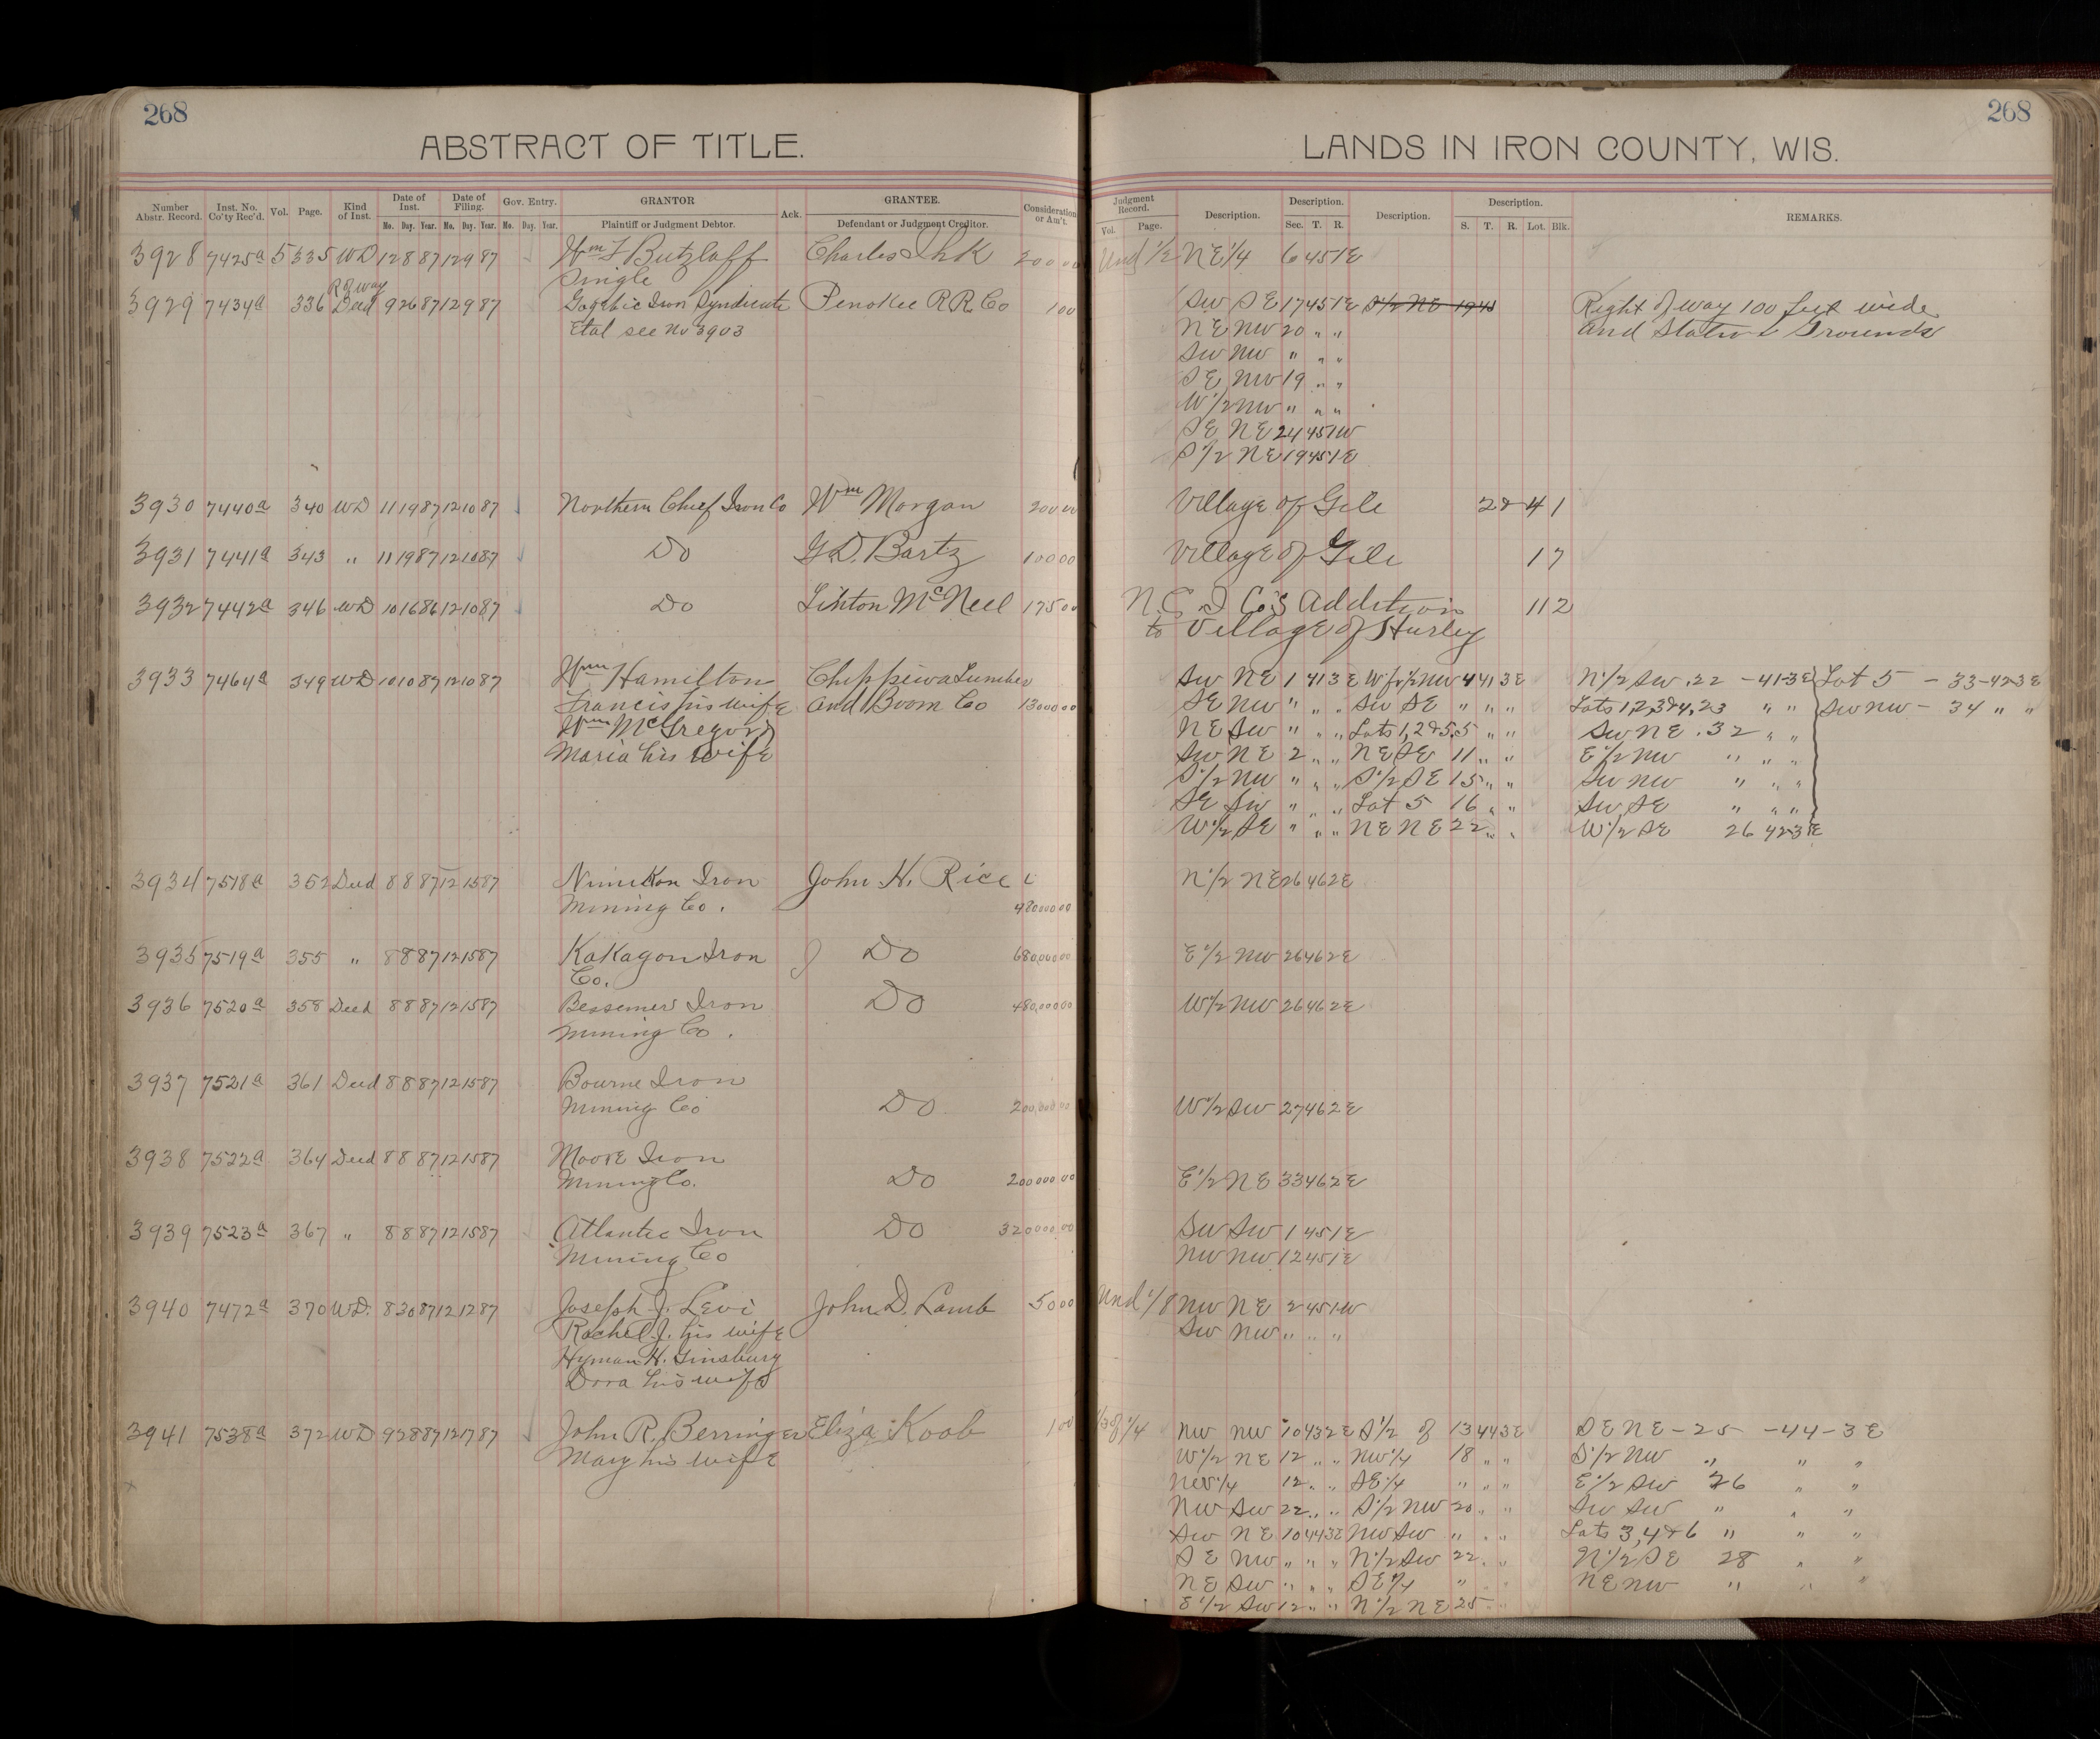 268
ABSTRACT OF TITLE.
Number Abstr. Record. Inst. No. Co'ty Rec'd. Vol. Page. Kind of Inst. Date of Inst. Mo. Day. Year. Date of Filing. Mo. Day. Year. Gov. Entry. Mo. Day. Year. GRANTOR Plaintiff or Judgment Debtor. Ack. GRANTEE. Defendant or Judgment Creditor. Consideration or Am't.
3928 7425a 5 335 WD 12 8 87 12 9 87 Wm F Butzlaff Charles Ink 200 00
Single
3929 7434a 336 R of way Deed 9 26 87 12 9 87 Gogebic Iron Syndicate Penokee R R Co 1 00
Etal see No 3903
3930 7440a 340 WD 11 19 87 12 10 87 Northern Chief Iron Co Wm Morgan 200 00
3931 7441a 343 " 11 19 87 12 10 87 Do G D. Bartz 100 00
3932 7442a 346 WD 10 16 86 12 10 87 Do Linton McNeel 175 00
3933 7464a 349 WD 10 10 87 12 10 87 Wm Hamilton Chippewa Lumber
Francis his wife and Boom Co 13000 00
Wm McGregor
Maria his wife
3934 7518a 352 Deed 8 8 87 12 15 87 Nimikon Iron John H. Rice
Mining Co. 480000 00
3935 7519a 355 " 8 8 87 12 15 87 KaKagon Iron Do 680,000 00
Co.
3936 7520a 358 Deed 8 8 87 12 15 87 Bessemer Iron Do 480,000 00
Mining Co.
3937 7521a 361 Deed 8 8 87 12 15 87 Bourne Iron
Mining Co Do 200,000 00
3938 7522a 364 Deed 8 8 87 12 15 87 Moore Iron
Mining Co. Do 200 000 00
3939 7523a 367 " 8 8 87 12 15 87 Atlantic Iron Do 320000 00
Mining Co
3940 7472a 370 WD. 8 30 87 12 12 87 Joseph J. Levi John D. Lamb 50 00
Rachel J. his wife
Hyman H. Ginsburg
Dora his wife
3941 7538a 372 WD 9 28 87 12 17 87 John R. Berringer Eliza Koob 1 00
Mary his wife
268
LANDS IN IRON COUNTY, WIS.
Judgment Record. Vol. Page. Description. Description. Sec. T. R. Description. Description. S. T. R. Lot. Blk. REMARKS.
Und 1/2 NE 1/4 6 45 1E
SW SE 17 45 1E S 1/2 NE 19 45 Right of way 100 feet wide
NE NW 20 " " and Station Grounds
SW NW " " "
SE NW 19 " "
W 1/2 NW " " "
SE NE 24 45 1W
S 1/2 NE 19 45 1E
Village of Gile 2 & 4 1
Village of Gile 1 7
N. C. I Co's Addition 11 2
to Village of Hurley
SW NE 1 41 3E W 1/2 NW 4 41 3E N 1/2 SW . 22 - 41-3E Lot 5 - 33-42-3E
SE NW " " " SW SE " " " Lots 1,2,3&4, 23 " " SW NW - 34 " "
NE SW " " " Lots 1, 2 & 5. 5 " " SW NE . 32 " "
SW NE 2 " " NE SE 11 " " E 1/2 NW " " "
S 1/2 NW " " " S 1/2 SE 15 " " SW NW " " "
SE SW " " " Lot 5 16 " " SW SE " " "
W 1/2 SE " " " NE NE 22 " " W 1/2 SE 26 42-3E
N 1/2 NE 26 46 2E
E 1/2 NW 26 46 2E
W 1/2 NW 26 46 2E
W 1/2 SW 27 46 2E
E 1/2 NE 33 46 2E
SW SW 1 45 1E
NW NW 12 45 1E
Und 1/8 NW NE 2 45 1W
SW NW " " "
1/3 of 1/4 NW NW 10 43 2E S 1/2 of 13 44 3E SE NE - 25 - 44 - 3E
W 1/2 NE 12 " " NW 1/4 18 " " S 1/2 NW " " "
NW 1/4 12 " " SE 1/4 " " " E 1/2 SW 26 " "
NW SW 22 " " S 1/2 NW 20 " " SW SW " " "
SW NE 10 44 3E NW SW " " " Lots 3, 4 & 6 " " "
SE NW " " " N 1/2 SW 22 " " N 1/2 SE 28 " "
NE SW " " " SE 1/4 " " " NE NW " " "
E 1/2 SW 12 " " N 1/2 NE 25 " "